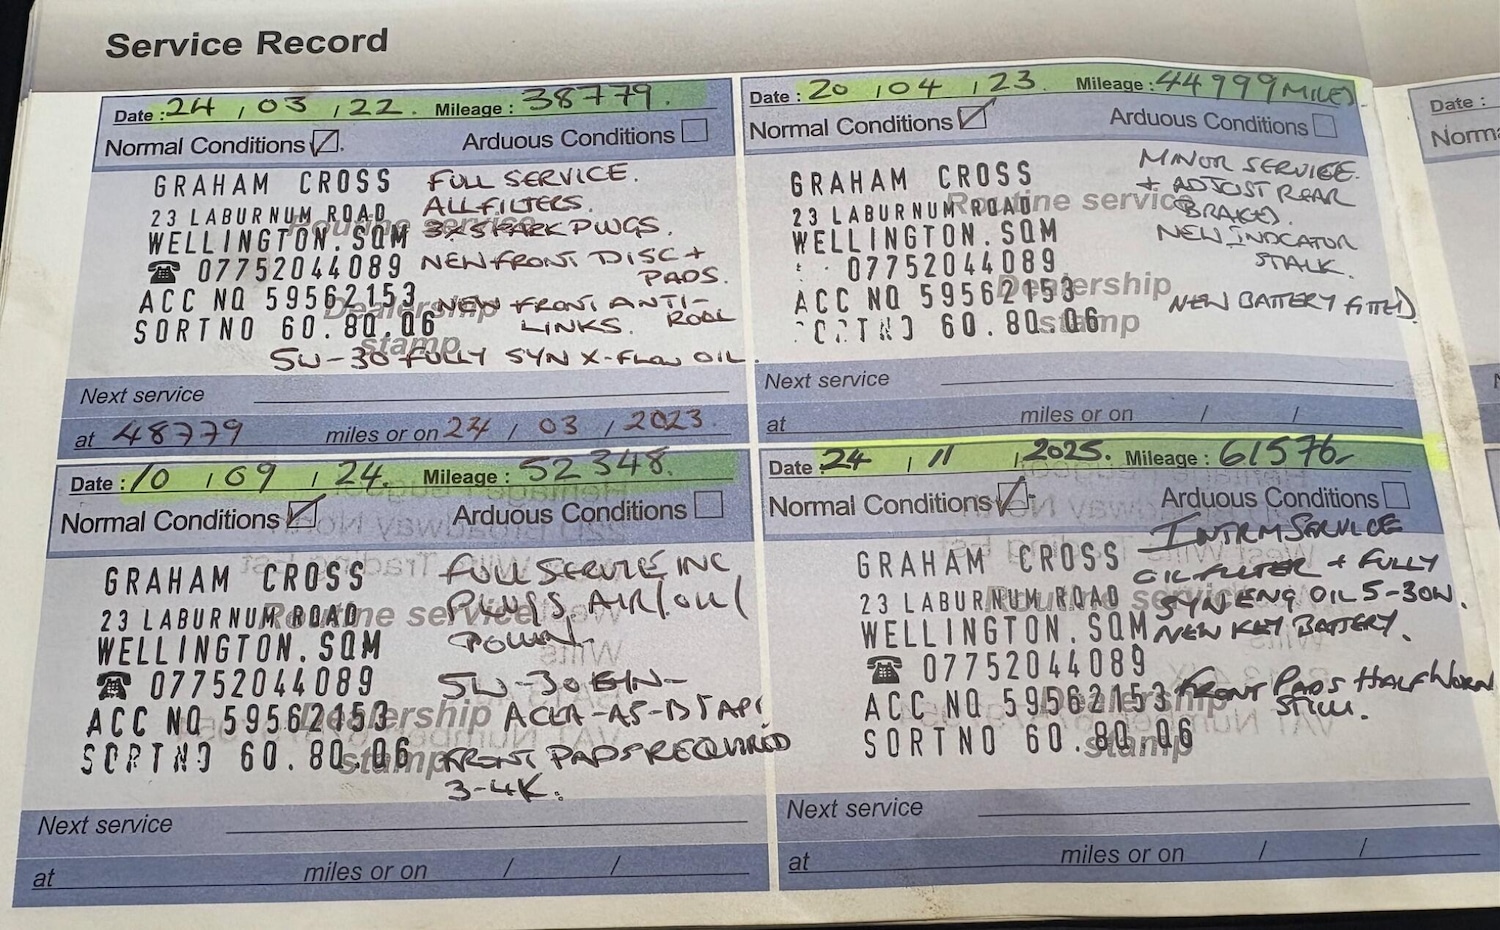 Service Record
Date : 24 / 03 / 22. Mileage : 38779.
Normal Conditions Arduous Conditions
GRAHAM CROSS
23 LABURNUM ROAD
WELLINGTON. SOM
☎ 07752044089
ACC NO 59562153
SORTNO 60.80.06
Routine service
Dealership
stamp
FULL SERVICE.
ALL FILTERS.
3X SPARK PLUGS.
NEW FRONT DISC +
PADS.
NEW FRONT ANTI-
ROLL
LINKS.
5W-30 FULLY SYN X-FLOW OIL.
Next service
at 48779 miles or on 24 / 03 / 2023.
Date : 20 / 04 / 23. Mileage : 44999 MILES
Normal Conditions Arduous Conditions
GRAHAM CROSS
23 LABURNUM ROAD
WELLINGTON. SOM
07752044089
ACC NO 59562153
SORTNO 60.80.06
Routine service
Dealership
stamp
MINOR SERVICE.
+ ADJUST REAR
BRAKES.
NEW INDCATOR
STALK.
NEW BATTERY FITTED
Next service
at miles or on / /
Date : 10 / 09 / 24. Mileage : 52348.
Normal Conditions Arduous Conditions
GRAHAM CROSS
23 LABURNUM ROAD
WELLINGTON. SOM
☎ 07752044089
ACC NO 59562153
SORTNO 60.80.06
Routine service
Dealership
stamp
FULL SERVICE INC
PLUGS AIR/OIL/
5W-30
FRONT PADS REQUIRED
3-4K.
Next service
at miles or on / /
Date : 24 / 11 / 2025. Mileage : 61576
Normal Conditions Arduous Conditions
GRAHAM CROSS
23 LABURNUM ROAD
WELLINGTON. SOM
☎ 07752044089
ACC NO 59562153
SORTNO 60.80.06
Routine service
Dealership
stamp
INTRM SERVICE
OIL FILTER + FULLY
SYN ENG OIL 5-30W.
NEW KEY BATTERY.
FRONT PADS HALF WORN
STILL.
Next service
at miles or on / /
Date :